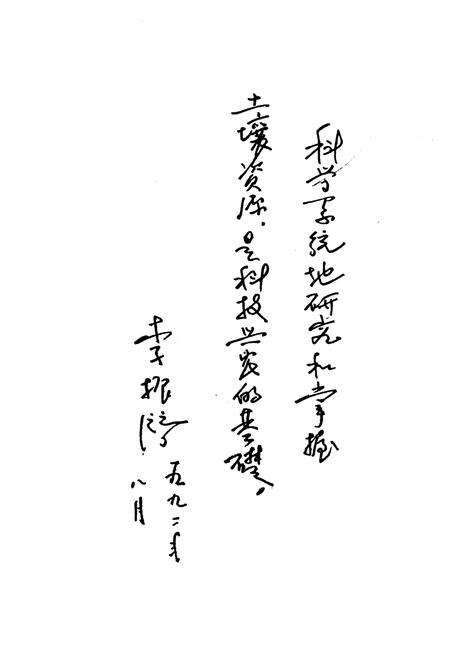 科学系统地研究和掌握
土壤资源，是科技兴农的基础。
李
九二年
八月